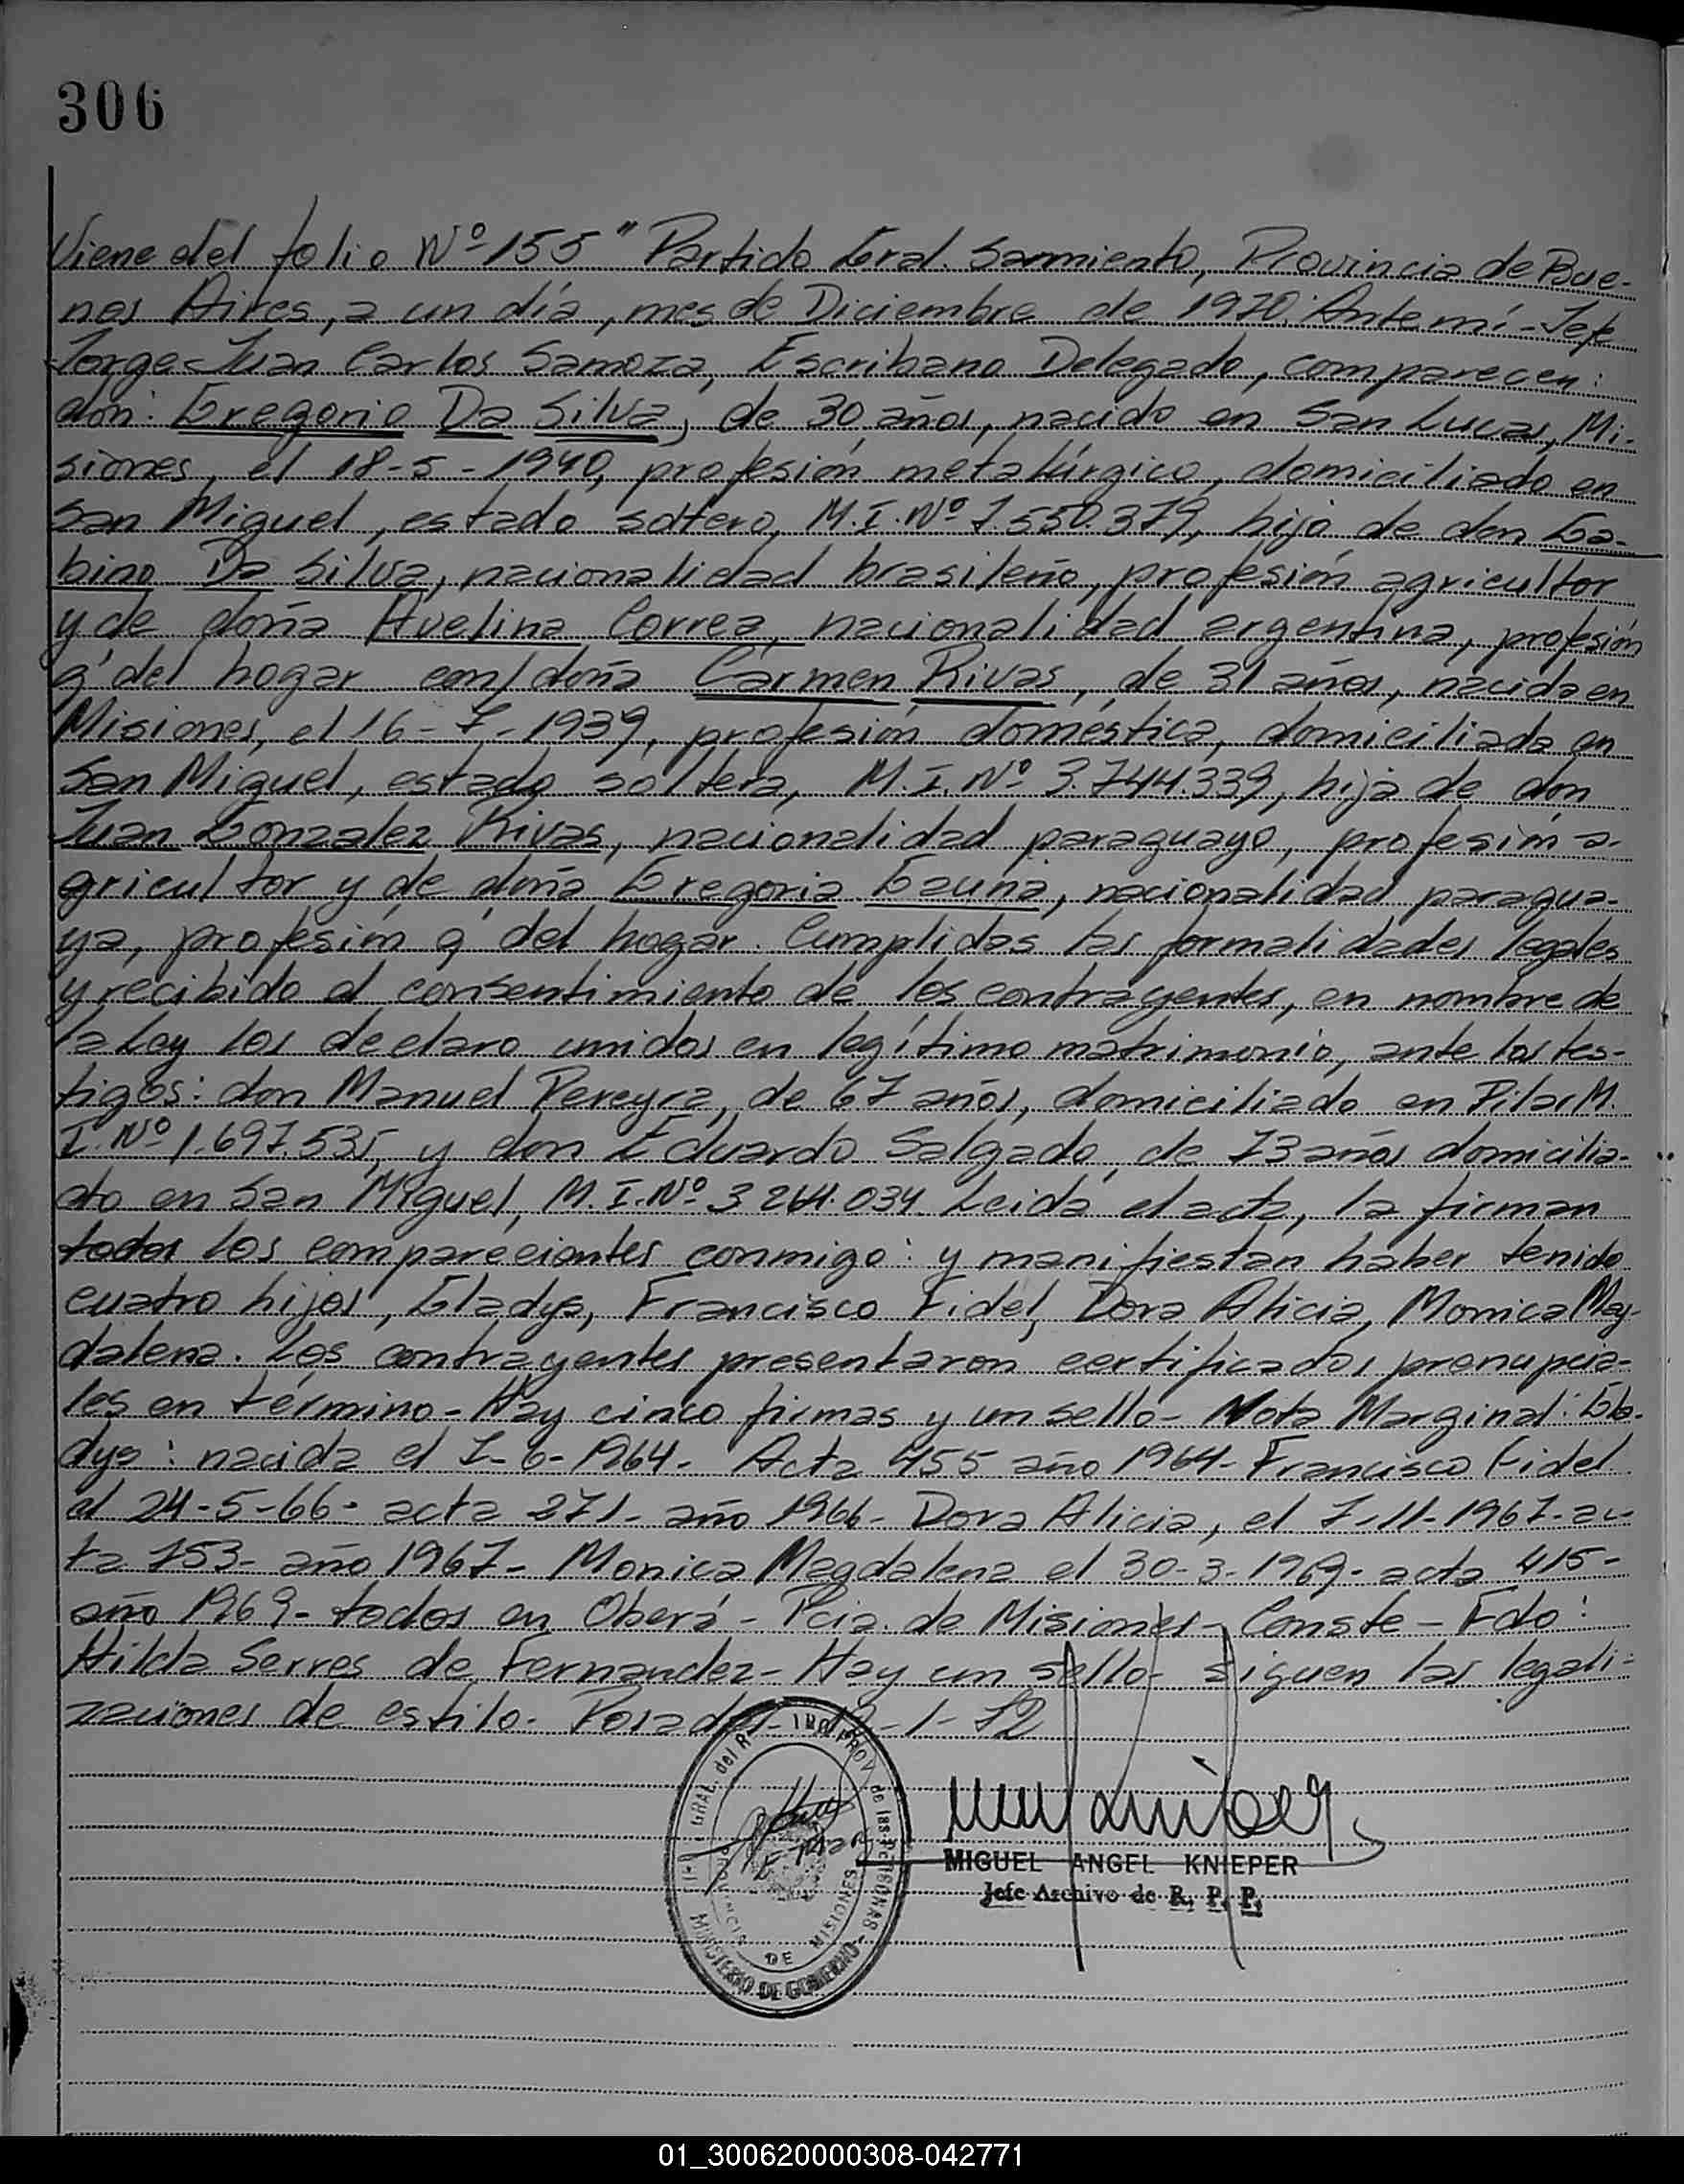 306
Viene del folio Nº 155" Partido Gral. Sarmiento, Provincia de Bue-
nos Aires, a un día, mes de Diciembre de 1970. Ante mí - Jefe
Jorge Juan Carlos Samoza, Escribano Delegado, comparecen:
don: Gregorio Da Silva, de 30 años, nacido en San Lucas, Mi-
siones, el 18-5-1940, profesión metalúrgico, domiciliado en
San Miguel, estado soltero, M.I. Nº 7.550.379, hijo de don Ga-
bino Da Silva, nacionalidad brasileño, profesión agricultor
y de doña Avelina Correa, nacionalidad argentina, profesión
q' del hogar con/doña Carmen Rivas, de 31 años, nacida en
Misiones, el 16-7-1939, profesión doméstica, domiciliada en
San Miguel, estado soltera, M.I. Nº 3.744.339, hija de don
Juan Gonzalez Rivas, nacionalidad paraguayo, profesión a-
gricultor y de doña Gregoria Gauna, nacionalidad paragua-
ya, profesión q' del hogar. Cumplidas las formalidades legales
y recibido el consentimiento de los contrayentes, en nombre de
la Ley los declaro unidos en legítimo matrimonio, ante los tes-
tigos: don Manuel Pereyra, de 67 años, domiciliado en Pilar M.
I. Nº 1.697.535, y don Eduardo Salgado, de 73 años domicilia-
do en San Miguel, M.I. Nº 3 264.034. Leida el acta, la firman
todos los comparecientes conmigo: y manifiestan haber tenido
cuatro hijos, Gladys, Francisco Fidel, Dora Alicia, Monica Mag-
dalena. Los contrayentes presentaron certificados prenupcia-
les en término - Hay cinco firmas y un sello - Nota Marginal: Gla-
dys: nacida el 7-6-1964 - Acta 455 año 1964 - Francisco Fidel
el 24-5-66 - acta 271 - año 1966 - Dora Alicia, el 7-11-1967 - ac-
ta 753 - año 1967 - Monica Magdalena el 30-3-1969 - acta 415 -
año 1969 - todos en Oberá - Pcia. de Misiones - Conste - Fdo:
Hilda Serres de Fernandez - Hay un sello - siguen las legali-
zaciones de estilo. Posadas - -1-72
MIGUEL ANGEL KNIEPER
Jefe Archivo de R. P. P.
GRAL. del R PROV de las PERSONAS
MINISTERIO DE GOBIERNO
DE MISIONES
01_300620000308-042771